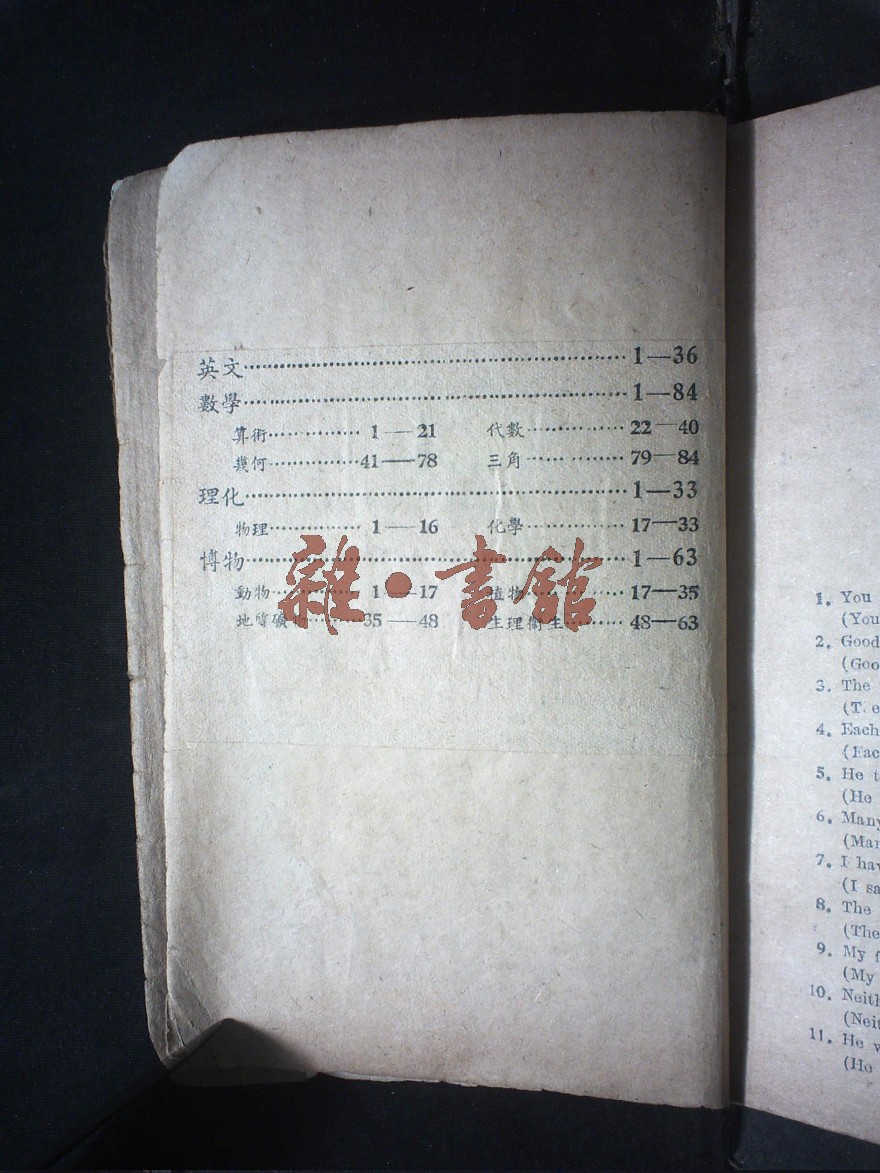 英文 1—36
數學 1—84
算術 1—21 代數 22—40
幾何 41—78 三角 79—84
理化 1—33
物理 1—16 化學 17—33
博物 1—63
動物 1—17 植物 17—35
地質礦物 35—48 生理衞生 48—63
雜·書館
1. You
(You
2. Good
(Goo
3. The
(T e
4. Each
(Eac
5. He t
(He
6. Many
(Man
7. I hav
(I sa
8. The
(The
9. My f
(My
10. Neith
(Neit
11. He w
(He